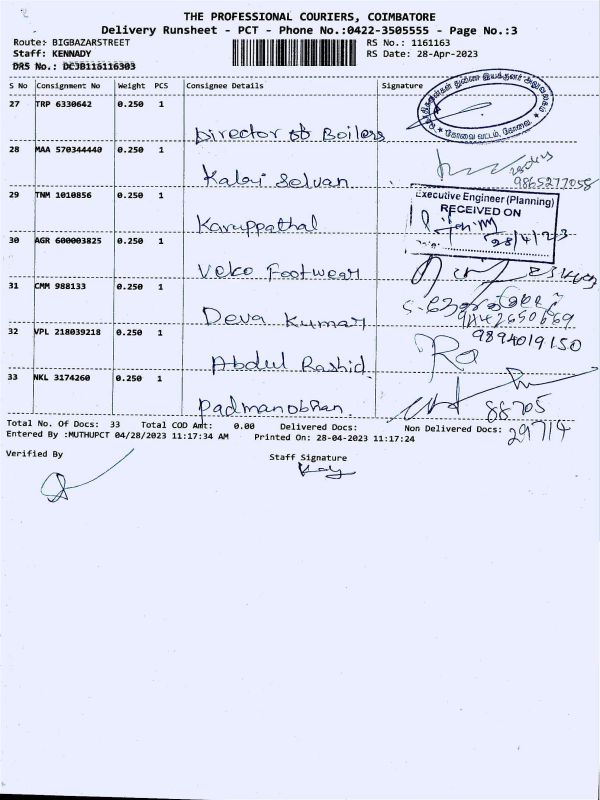 THE PROFESSIONAL COURIERS, COIMBATORE
Delivery Runsheet - PCT - Phone No.:0422-3505555 - Page No.:3
Route: BIGBAZARSTREET RS No.: 1161163
Staff: KENNADY RS Date: 28-Apr-2023
DRS No.: DCJB116116303
S No Consignment No Weight PCS Consignee Details Signature
27 TRP 6330642 0.250 1
Director of Boilers
28 MAA 570344440 0.250 1
Kalai Selvan 9865277058
29 TNM 1010856 0.250 1
Executive Engineer (Planning)
RECEIVED ON
Karuppathal
28/4/23
30 AGR 600003825 0.250 1
Veko Footwear
31 CMM 988133 0.250 1
Deva Kumar
32 VPL 218039218 0.250 1 9894019150
Abdul Rashid
33 NKL 3174260 0.250 1
Padmanabhan 88705
29714
Total No. Of Docs: 33 Total COD Amt: 0.00 Delivered Docs: Non Delivered Docs:
Entered By :MUTHUPCT 04/28/2023 11:17:34 AM Printed On: 28-04-2023 11:17:24
Verified By Staff Signature